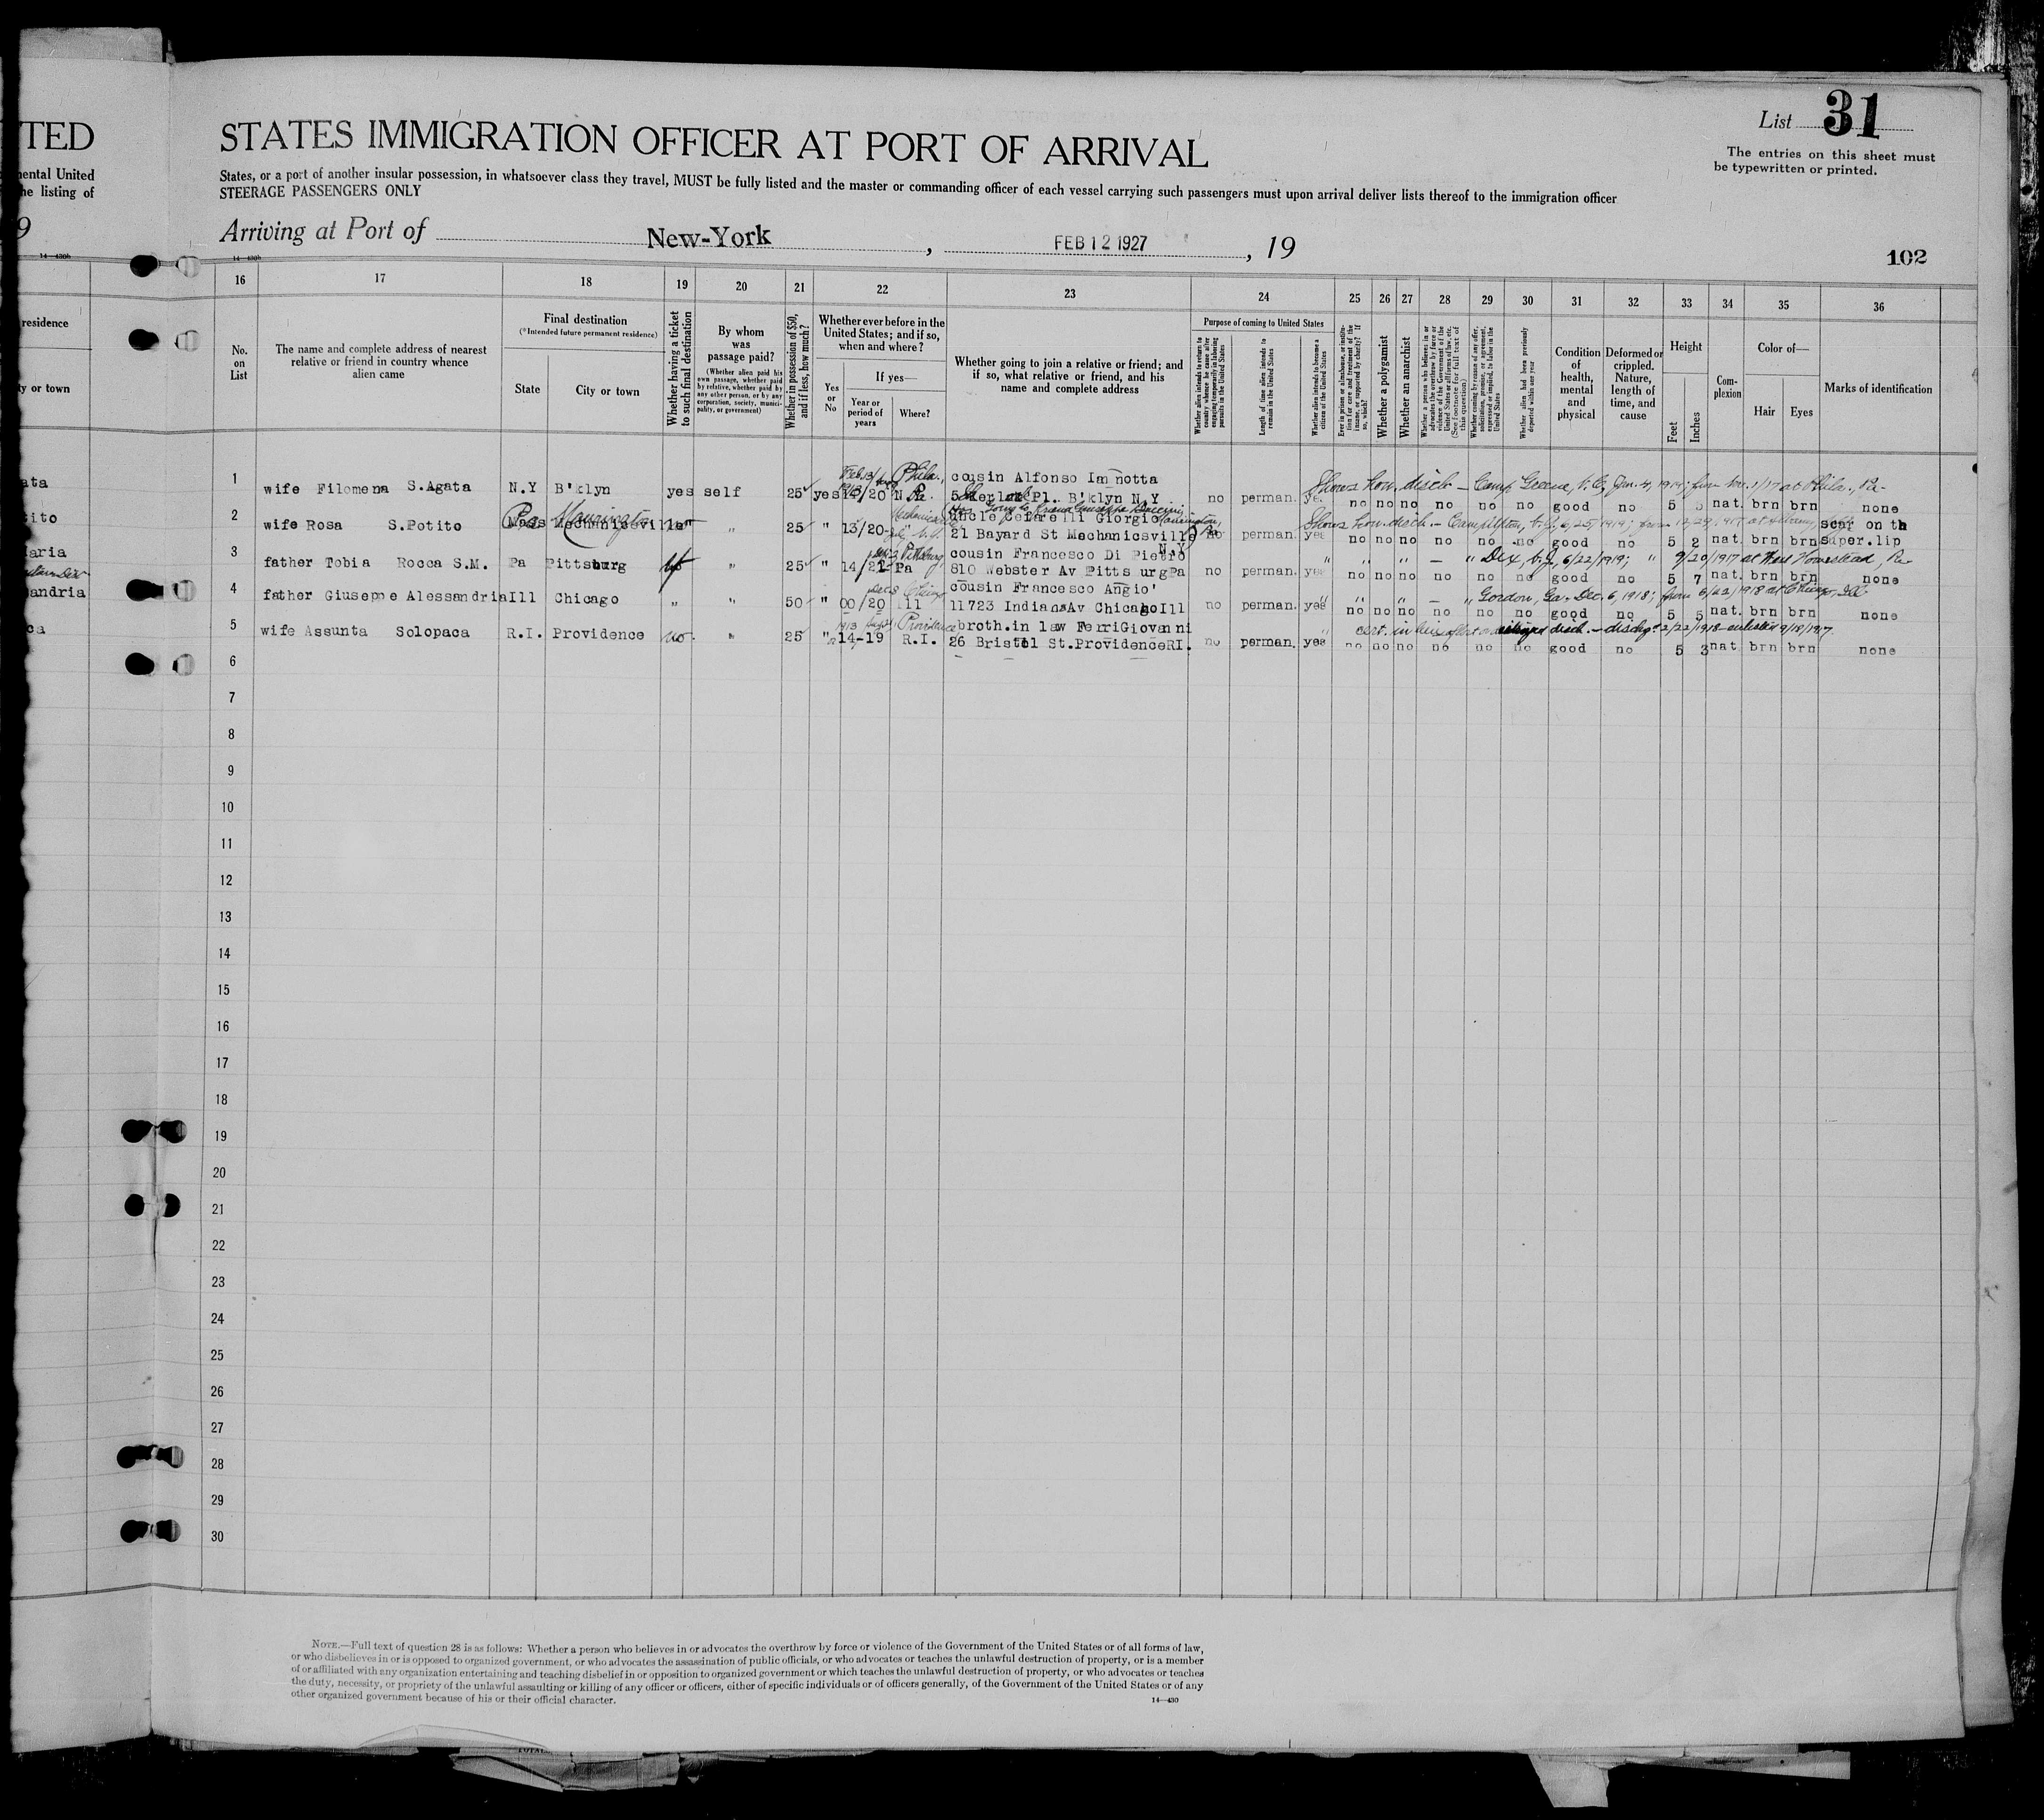 TED
STATES IMMIGRATION OFFICER AT PORT OF ARRIVAL
List 31
The entries on this sheet must
be typewritten or printed.
mental United
the listing of
States, or a port of another insular possession, in whatsoever class they travel, MUST be fully listed and the master or commanding officer of each vessel carrying such passengers must upon arrival deliver lists thereof to the immigration officer
STEERAGE PASSENGERS ONLY
9
Arriving at Port of New-York, FEB 12 1927, 19
14—430b
14—430b
102
16 17 18 19 20 21 22 23 24 25 26 27 28 29 30 31 32 33 34 35 36
residence
ty or town
No. on List
The name and complete address of nearest relative or friend in country whence alien came
Final destination
(*Intended future permanent residence)
State
City or town
Whether having a ticket to such final destination
By whom was passage paid?
(Whether alien paid his own passage, whether paid by relative, whether paid by any other person, or by any corporation, society, municipality, or government)
Whether in possession of $50, and if less, how much?
Whether ever before in the United States; and if so, when and where?
Yes or No
If yes—
Year or period of years
Where?
Whether going to join a relative or friend; and if so, what relative or friend, and his name and complete address
Purpose of coming to United States
Whether alien intends to return to country whence he came after engaging temporarily in laboring pursuits in the United States
Length of time alien intends to remain in the United States
Whether alien intends to become a citizen of the United States
Ever in prison or almshouse, or institution for care and treatment of the insane, or supported by charity? If so, which?
Whether a polygamist
Whether an anarchist
Whether a person who believes in or advocates the overthrow by force or violence of the Government of the United States or all forms of law, etc. (See footnote for full text of this question)
Whether coming by reason of any offer, solicitation, promise, or agreement, expressed or implied, to labor in the United States
Whether alien had been previously deported within one year
Condition of health, mental and physical
Deformed or crippled. Nature, length of time, and cause
Height
Feet
Inches
Complexion
Color of—
Hair
Eyes
Marks of identification
ata
1 wife Filomena S.Agata N.Y B'klyn yes self 25 yes 13/20 Phila. Pa. cousin Alfonso Iannotta
Pl. B'klyn N.Y no perman. yes no no no no no no good no 5 nat. brn brn none
Shows hon. disch. — Camp Greene, N.C., Jan. 4, 1919; from at Phila., Pa.
tito
2 wife Rosa S.Potito Mass Mechanicsville Pa. " " 25 " 13/20 uncle Giorgio
21 Bayard St Mechanicsville N.Y no perman. yes no no no no no no good no 5 2 nat. brn brn scar on th super.lip
Shows hon. disch. — Camp Upton, N.Y., 6/25/1919; from 12/29/1917 at Albany,
Maria
3 father Tobia Rocca S.M. Pa Pittsburg " 25 " 14/21 Pa cousin Francesco Di Pietro
810 Webster Av Pitts urgPa no perman. yes no no no no no no good no 5 7 nat. brn brn none
" " " — " Dix, N.J., 6/22/1919; " 9/20/1917 at West Homestead, Pa.
andria
4 father Giuseppe Alessandria Ill Chicago " " 50 " 00/20 Ill cousin Francesco Angio'
11723 IndianaAv ChicagoIll no perman. yes no no no no no no good no 5 5 nat. brn brn none
" " " — " Gordon, Ga. Dec. 6, 1918; from 6/22/1918 at Chicago, Ill.
ca
5 wife Assunta Solopaca R.I. Providence no " 25 " 14-19 Providence R.I. broth.in law FerriGiovanni
26 Bristol St.ProvidenceRI. no perman. yes no no no no no no good no 5 3 nat brn brn none
cert. in lieu of disch. — dischgd 2/22/1918 — enlisted 9/19/1917
6
7
8
9
10
11
12
13
14
15
16
17
18
19
20
21
22
23
24
25
26
27
28
29
30
NOTE.—Full text of question 28 is as follows: Whether a person who believes in or advocates the overthrow by force or violence of the Government of the United States or of all forms of law,
or who disbelieves in or is opposed to organized government, or who advocates the assassination of public officials, or who advocates or teaches the unlawful destruction of property, or is a member
of or affiliated with any organization entertaining and teaching disbelief in or opposition to organized government or which teaches the unlawful destruction of property, or who advocates or teaches
the duty, necessity, or propriety of the unlawful assaulting or killing of any officer or officers, either of specific individuals or of officers generally, of the Government of the United States or of any
other organized government because of his or their official character.
14—430